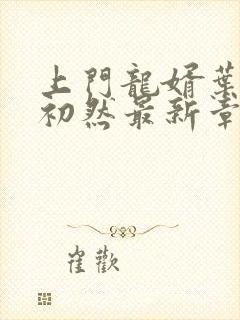 上門龍婿葉
初然最新章
崔歡